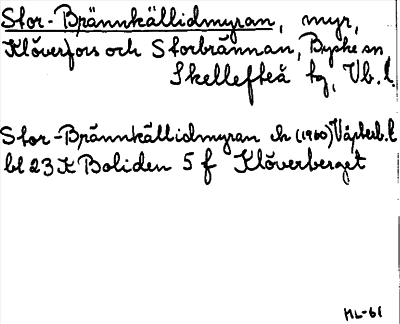 Stor-Brännkällidmyran, myr,
Klöverfors och Storbrännan, Byske sn
Skellefteå tg, Vb. l.
Stor-Brännkällidmyran ek (1960) Västerb. l
bl 23 K Boliden 5 f Klöverberget
ML-61